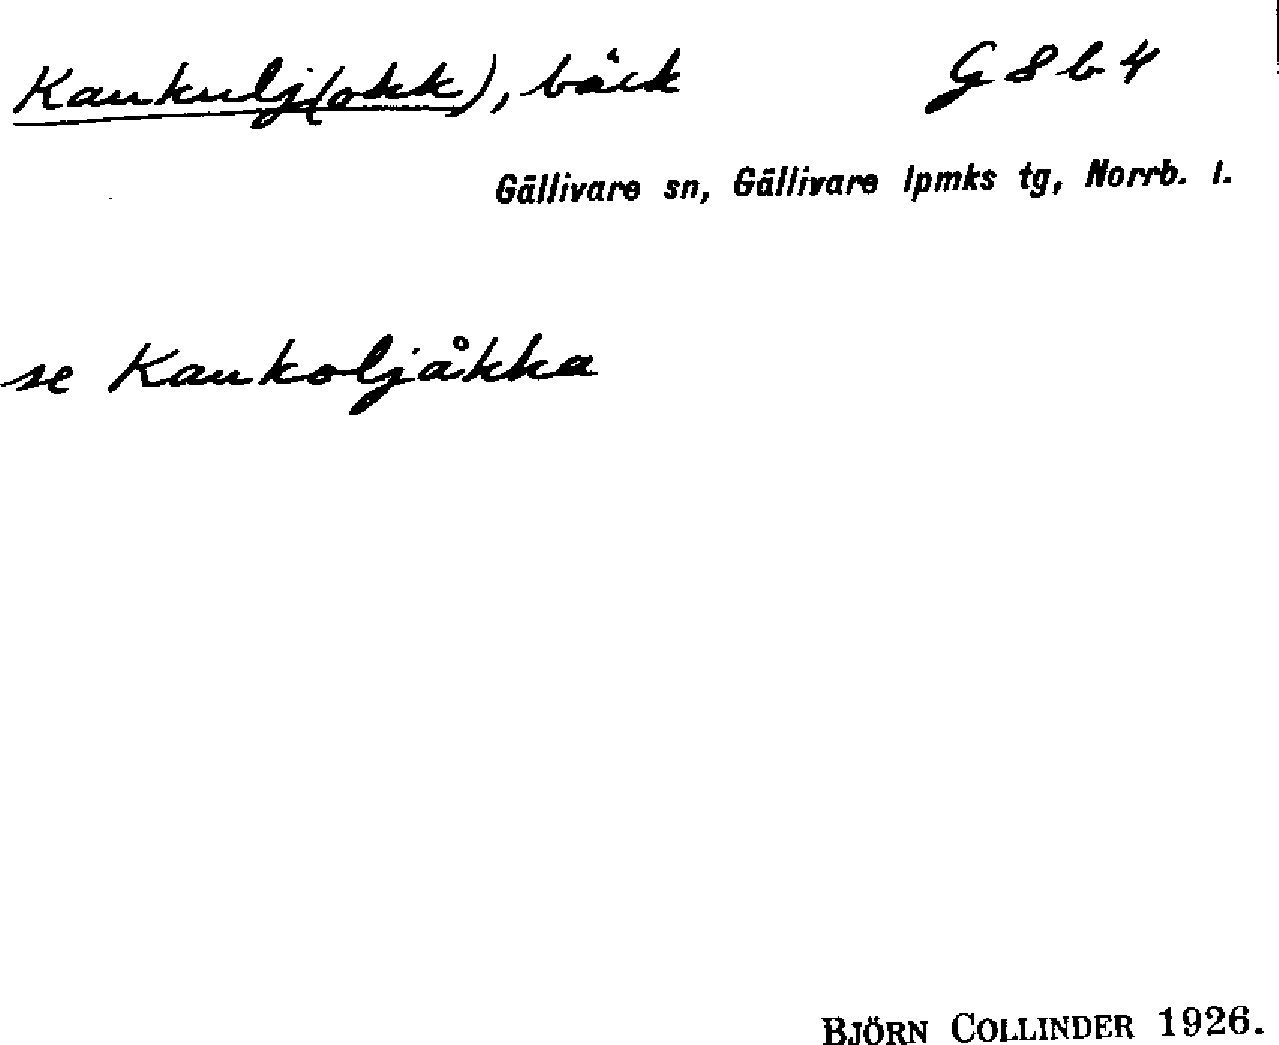 Kaukulj(okk), bäck G 8 b 4
Gällivare sn, Gällivare lpmks tg, Norrb. l.
se Kaukoljåkka
BJÖRN COLLINDER 1926.